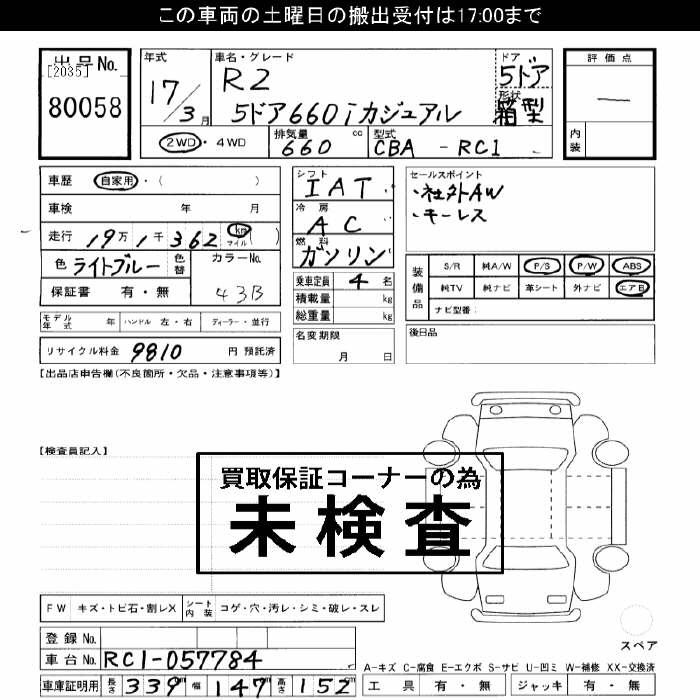 この車両の土曜日の搬出受付は17:00まで
出品No.
[2035]
80058
年式
17/3月
車名・グレード
R2
5ドア660iカジュアル
ドア
5ドア
形状
箱型
評価点
―
内装
2WD・4WD
排気量
660 cc
型式
CBA-RC1
車歴 自家用・( )
車検 年 月
走行 19万1千362 km マイル ( )
色 ライトブルー 色替
カラーNo.
43B
保証書 有・無
シフト
IAT
冷房
AC
燃料
ガソリン
乗車定員 4 名
積載量 kg
総重量 kg
セールスポイント
・社外AW
・キーレス
装備品
S/R 純A/W P/S P/W ABS
純TV 純ナビ 革シート 外ナビ エアB
ナビ型番:
モデル年式 年 ハンドル 左・右 ディーラー・並行
リサイクル料金 9810 円 預託済
名変期限
月 日
後日品
【出品店申告欄(不良箇所・欠品・注意事項等)】
【検査員記入】
買取保証コーナーの為
未検査
FW キズ・トビ石・割レX シート内装 コゲ・穴・汚レ・シミ・破レ・スレ
スペア
登録No.
車台No. RC1-057784
車庫証明用 長さ 339cm 幅 147cm 高さ 152cm
A-キズ C-腐食 E-エクボ S-サビ U-凹ミ W-補修 XX-交換済
工具 有・無 ジャッキ 有・無